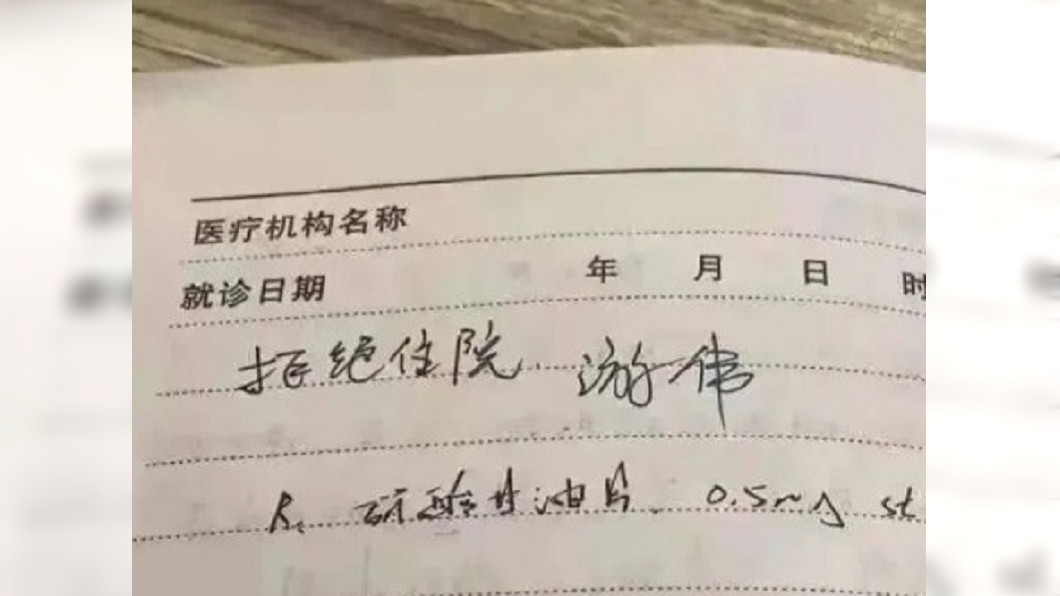 医疗机构名称
就诊日期 年 月 日 时
拒绝住院 游伟
R. 硝酸甘油片 0.5mg st